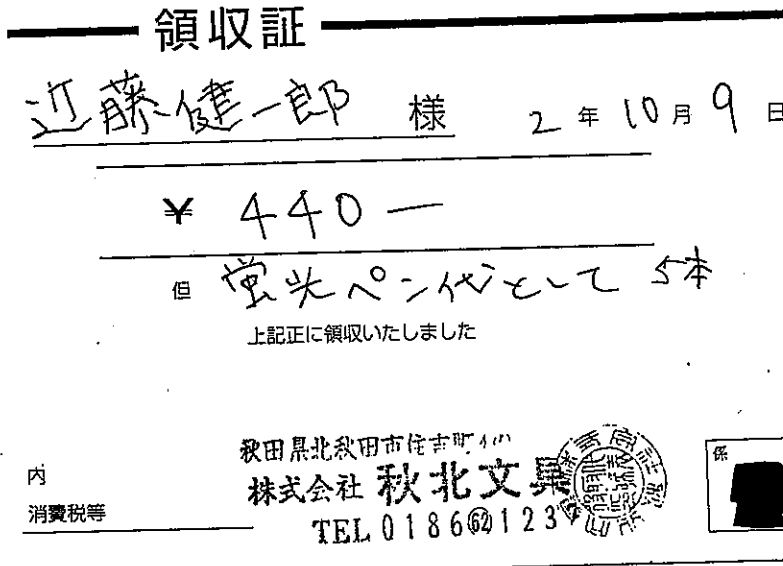 領収証
近藤健一郎 様 2年10月9日
¥ 440—
但 蛍光ペン代として 5本
上記正に領収いたしました
秋田県北秋田市住吉町
内
株式会社 秋北文具
消費税等
TEL 0186㉒123
係